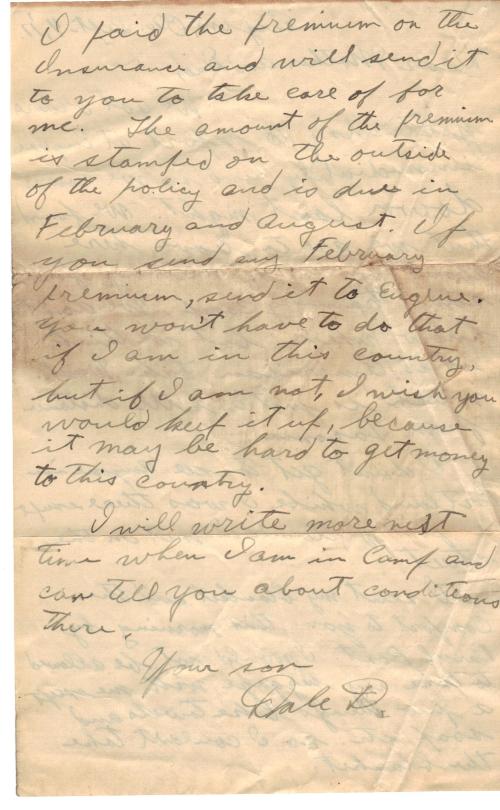 I paid the premium on the
Insurance and will send it
to you to take care of for
me. The amount of the premium
is stamped on the outside
of the policy and is due in
February and August. If
you send any February
premium, send it to Eugene.
You won't have to do that
if I am in this country,
but if I am not, I wish you
would keep it up, because
it may be hard to get money
to this country.
I will write more next
time when I am in Camp and
can tell you about conditions
there.
Your son
Dale D.